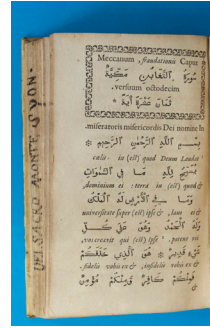 Meccanum , fraudationii Caput
سُورَةُ ٱلتَّغَابُنِ مَكِّيَّةٌ
.versuum octodecim
ثَمَانَ عَشْرَةَ آيَةً
.miseratoris misericordis Dei nomine In
بِسْمِ ٱللَّهِ ٱلرَّحْمَنِ ٱلرَّحِيمِ
cælis in (est) quod Deum Laudat
يُسَبِّحُ لِلَّهِ مَا فِي ٱلسَّمَوَاتِ
,dominium ei : terra in (est) quod &
وَمَا فِي ٱلْأَرْضِ لَهُ ٱلْمُلْكُ
universitate super (est) ipse & , laus ei &
وَلَهُ ٱلْحَمْدُ وَهُوَ عَلَى كُلِّ
.vos creavit qui (est) Ipse . potens rei
شَيْءٍ قَدِيرٌ هُوَ ٱلَّذِي خَلَقَكُمْ
.fidelis vobis ex & , infidelis vobis ex &
فَمِنْكُمْ كَافِرٌ وَمِنْكُمْ مُؤْمِنٌ
DEL SACRO MONTE